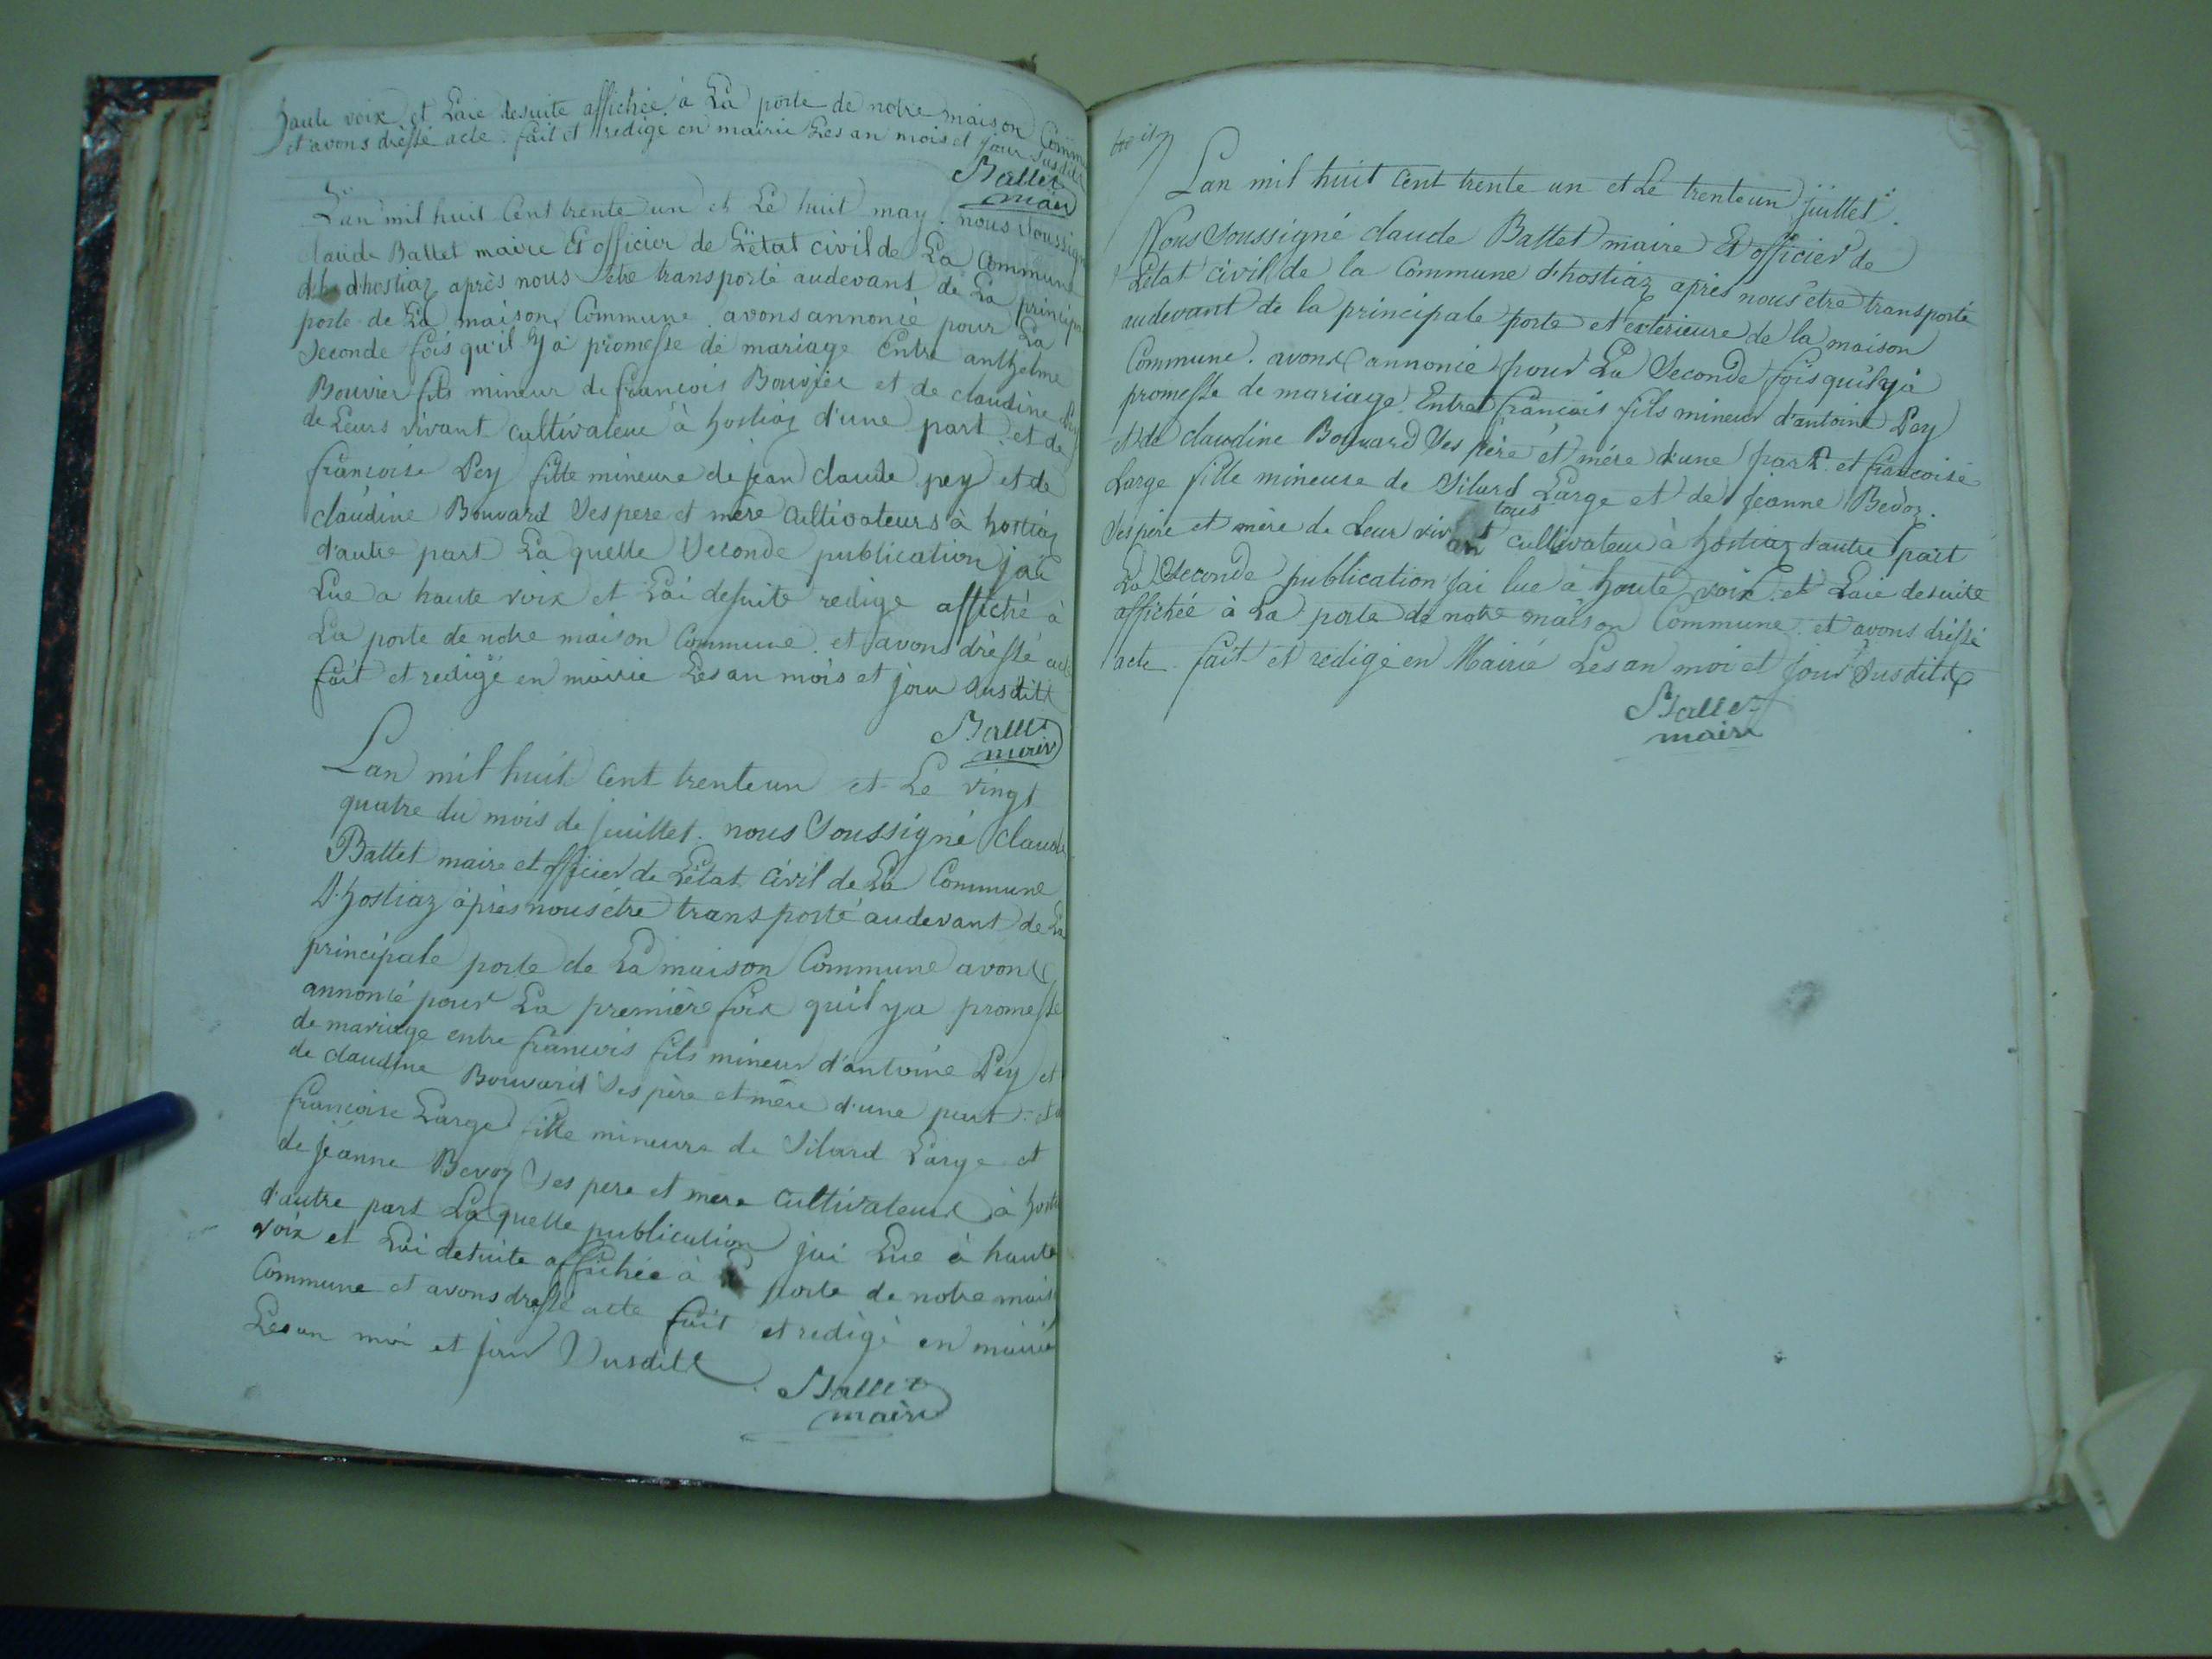 haute voix et Laie desuite affichée à La porte de notre maison Commu
et avons dréssé acte. fait et redigé en mairie Les an mois et jour susdits
Ballet
maire
L'an mil huit Cent trente un et Le huit may. nous Soussign
claude Ballet maire Et officier de L'état civil de La Commune
d'hostiaz après nous etre transporté audevant de La princip
porte de La maison Commune avons annoncé pour La
Seconde fois qu'il y a promesse de mariage Entre anthelme
Bouvier fils mineur de francois Bouvier et de claudine
de Leurs vivant cultivateur à hostiaz d'une part et de
francoise Pey fille mineure de jean claude pey et de
claudine Bouvard Ses pere et mère cultivateurs à hostiaz
d'autre part La quelle Seconde publication jai
Lue a haute voix et Lai desuite redige affiché à
La porte de notre maison Commune. et avons dréssé acte
fait et redigé en mairie Les an mois et jour susdits
Ballet
maire
Lan mil huit Cent trente un et Le vingt
quatre du mois de juillet. nous Soussigné claude
Ballet maire et officier de L'état Civil de La Commune
D'hostiaz après nous étre transporté audevant de La
principale porte de La maison Commune avons
annoncé pour La première fois quil y a promesse
de mariage entre francois fils mineur d'antoine Pey et
de claudine Bouvard Ses père et mère d'une part. et
francoise Large fille mineure de Silard Large et
de jeanne Bevoz Ses pere et mere Cultivateurs à hosti
d'autre part La quelle publication jai Lue à haute
voix et Lai desuite affichée à porte de notre mais
Commune et avons dressé acte fait et redigé en mairie
Les an moi et jour Susdits
Ballet
maire
Lan mil huit Cent trente un et Le trente un juillet.
Nous Soussigné claude Ballet maire Et officier de
L'état civil de la Commune d'hostiaz après nous etre transporté
audevant de la principale porte et exterieure de la maison
Commune. avons annoncé pour La Seconde fois quil y a
promesse de mariage Entre francois fils mineur d'antoine Pey
et de claudine Bouvard Ses père et mére d'une part. et francoise
Large fille mineure de Silard Large et de jeanne Bevoz.
Ses père et mère de Leur vivant tous cultivateur à hostiaz d'autre part
La Seconde publication jai lue à haute voix. et Laie desuite
affichée à La porte de notre maison Commune. et avons dréssé
acte fait et redigé en Mairie Les an moi et jour Susdits
Ballet
maire